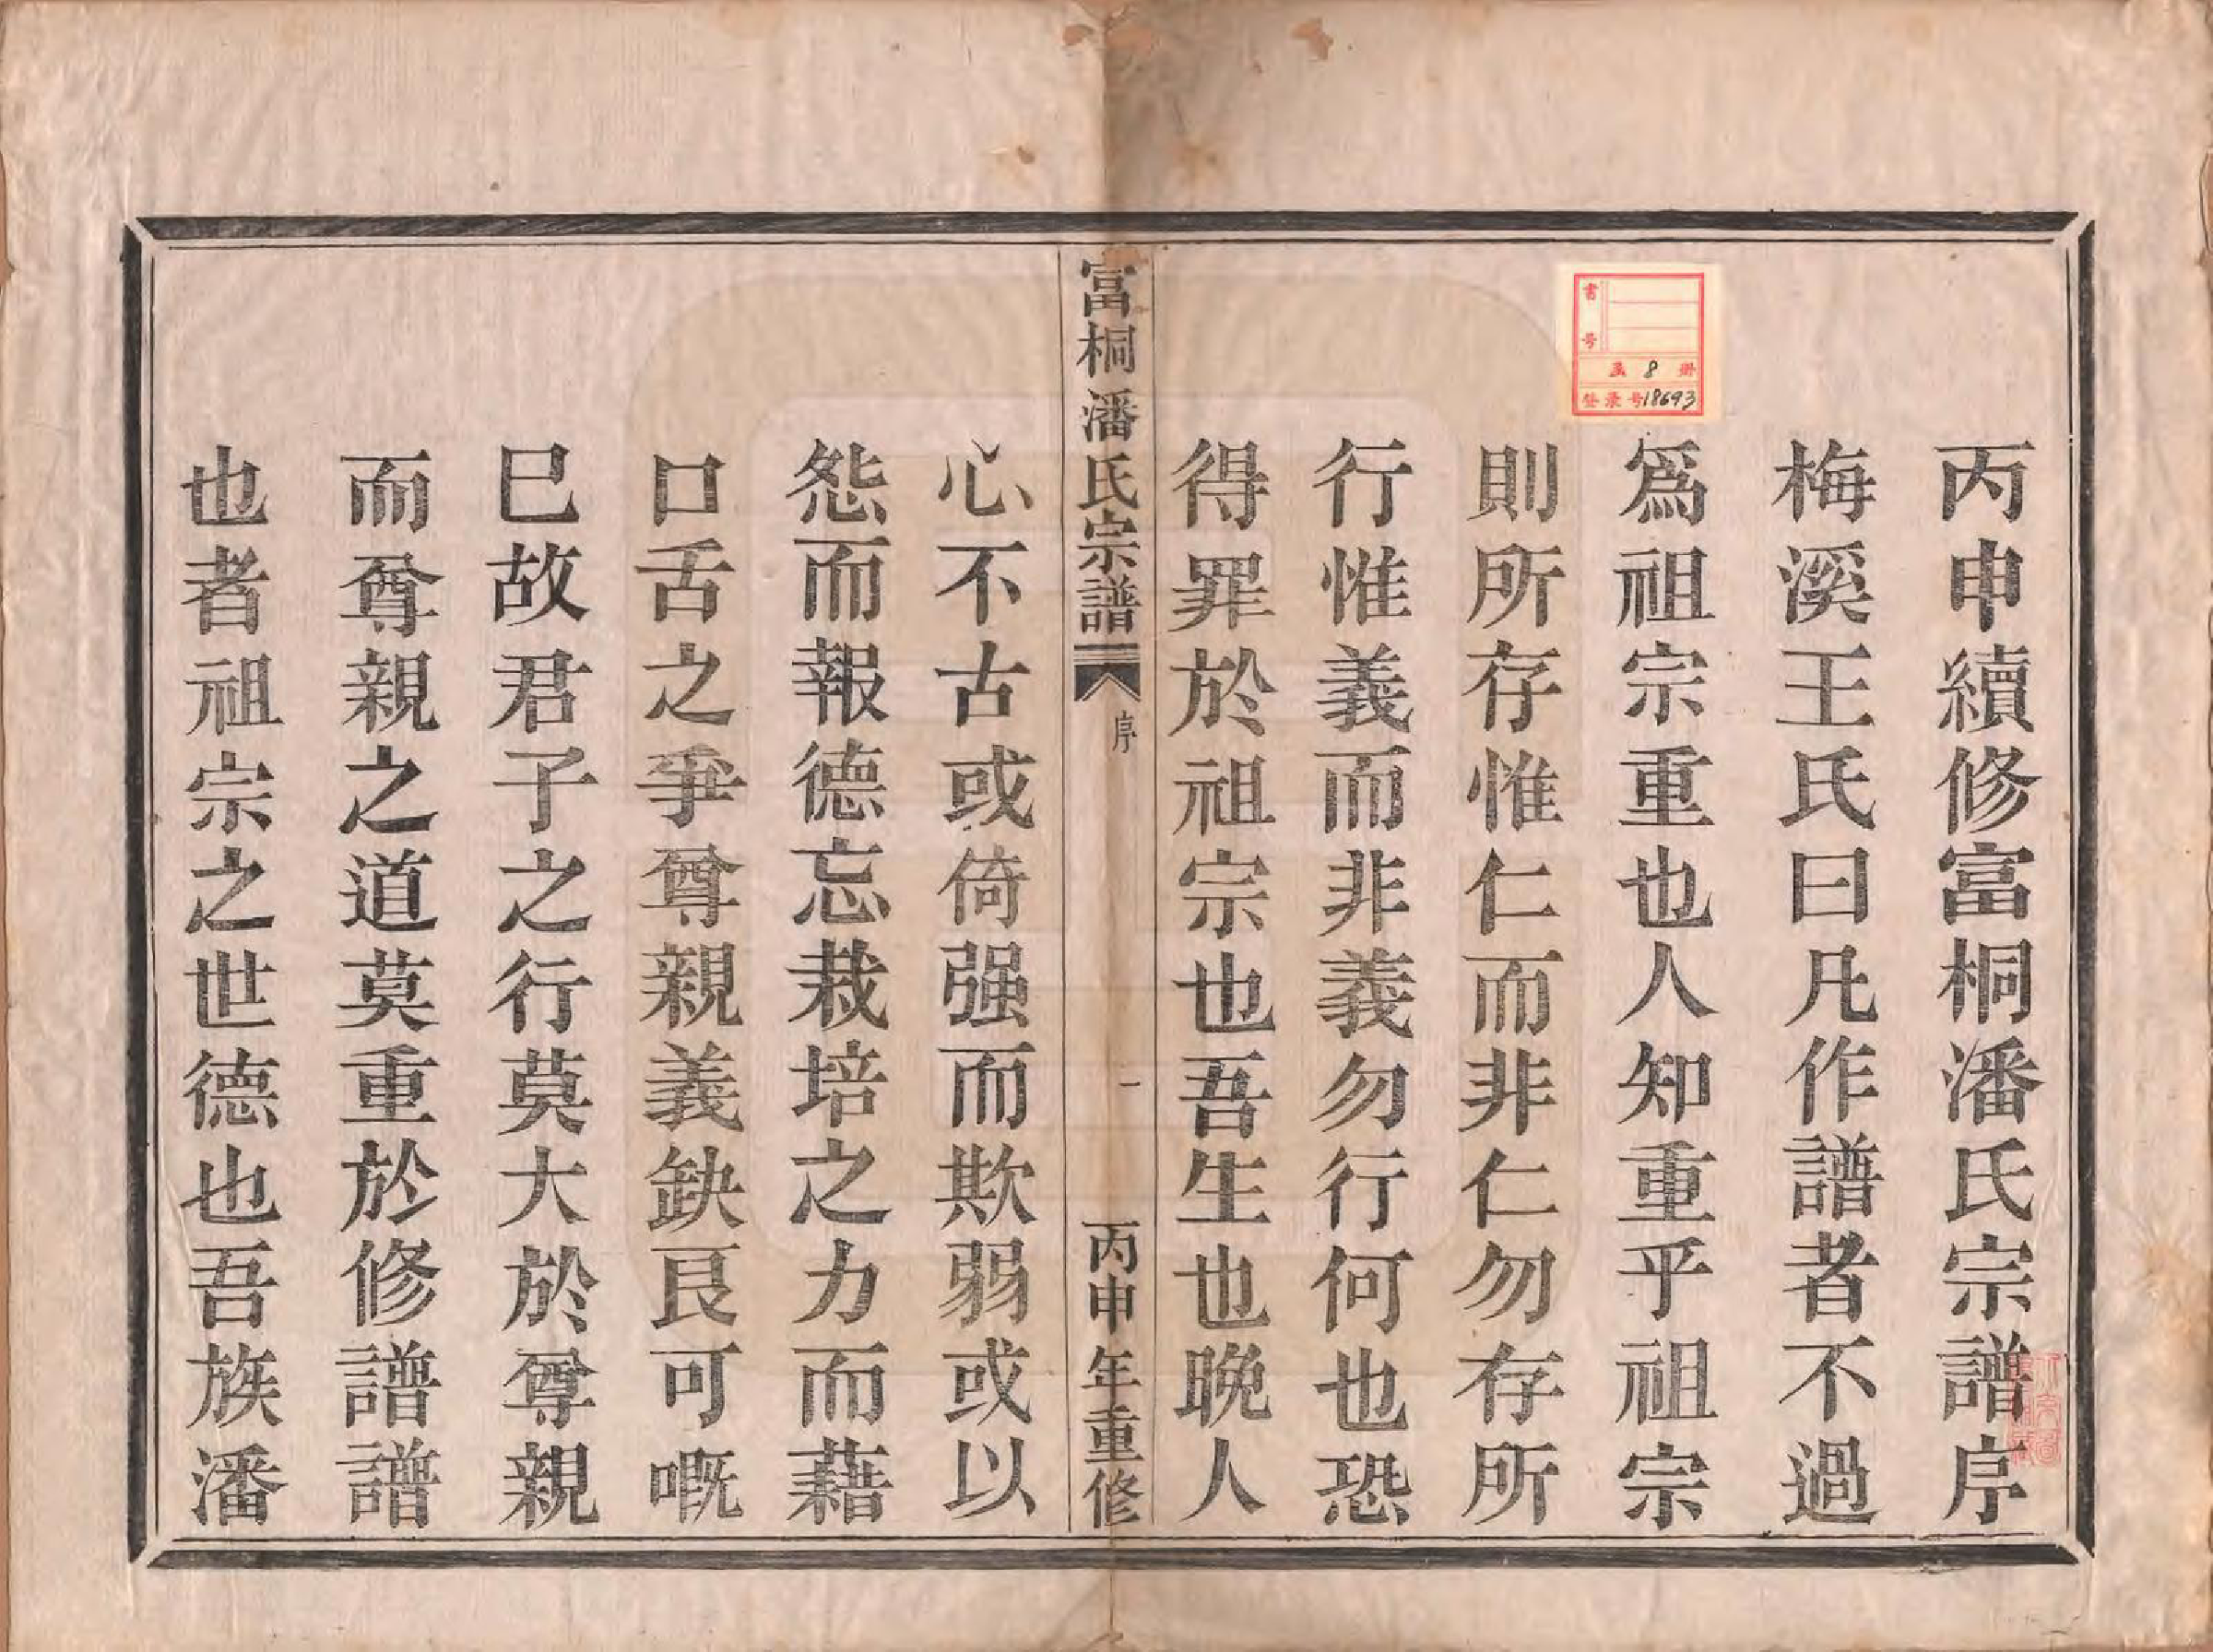 丙申續修富桐潘氏宗譜序
梅溪王氏曰凡作譜者不過
爲祖宗重也人知重乎祖宗
則所存惟仁而非仁勿存所
行惟義而非義勿行何也恐
得罪於祖宗也吾生也晚人
富桐潘氏宗譜
序
一
丙申年重修
心不古或倚强而欺弱或以
怨而報德忘栽培之力而藉
口舌之爭尊親義缺良可嘅
巳故君子之行莫大於尊親
而尊親之道莫重於修譜譜
也者祖宗之世德也吾族潘
書号
函 8 册
登录号18693